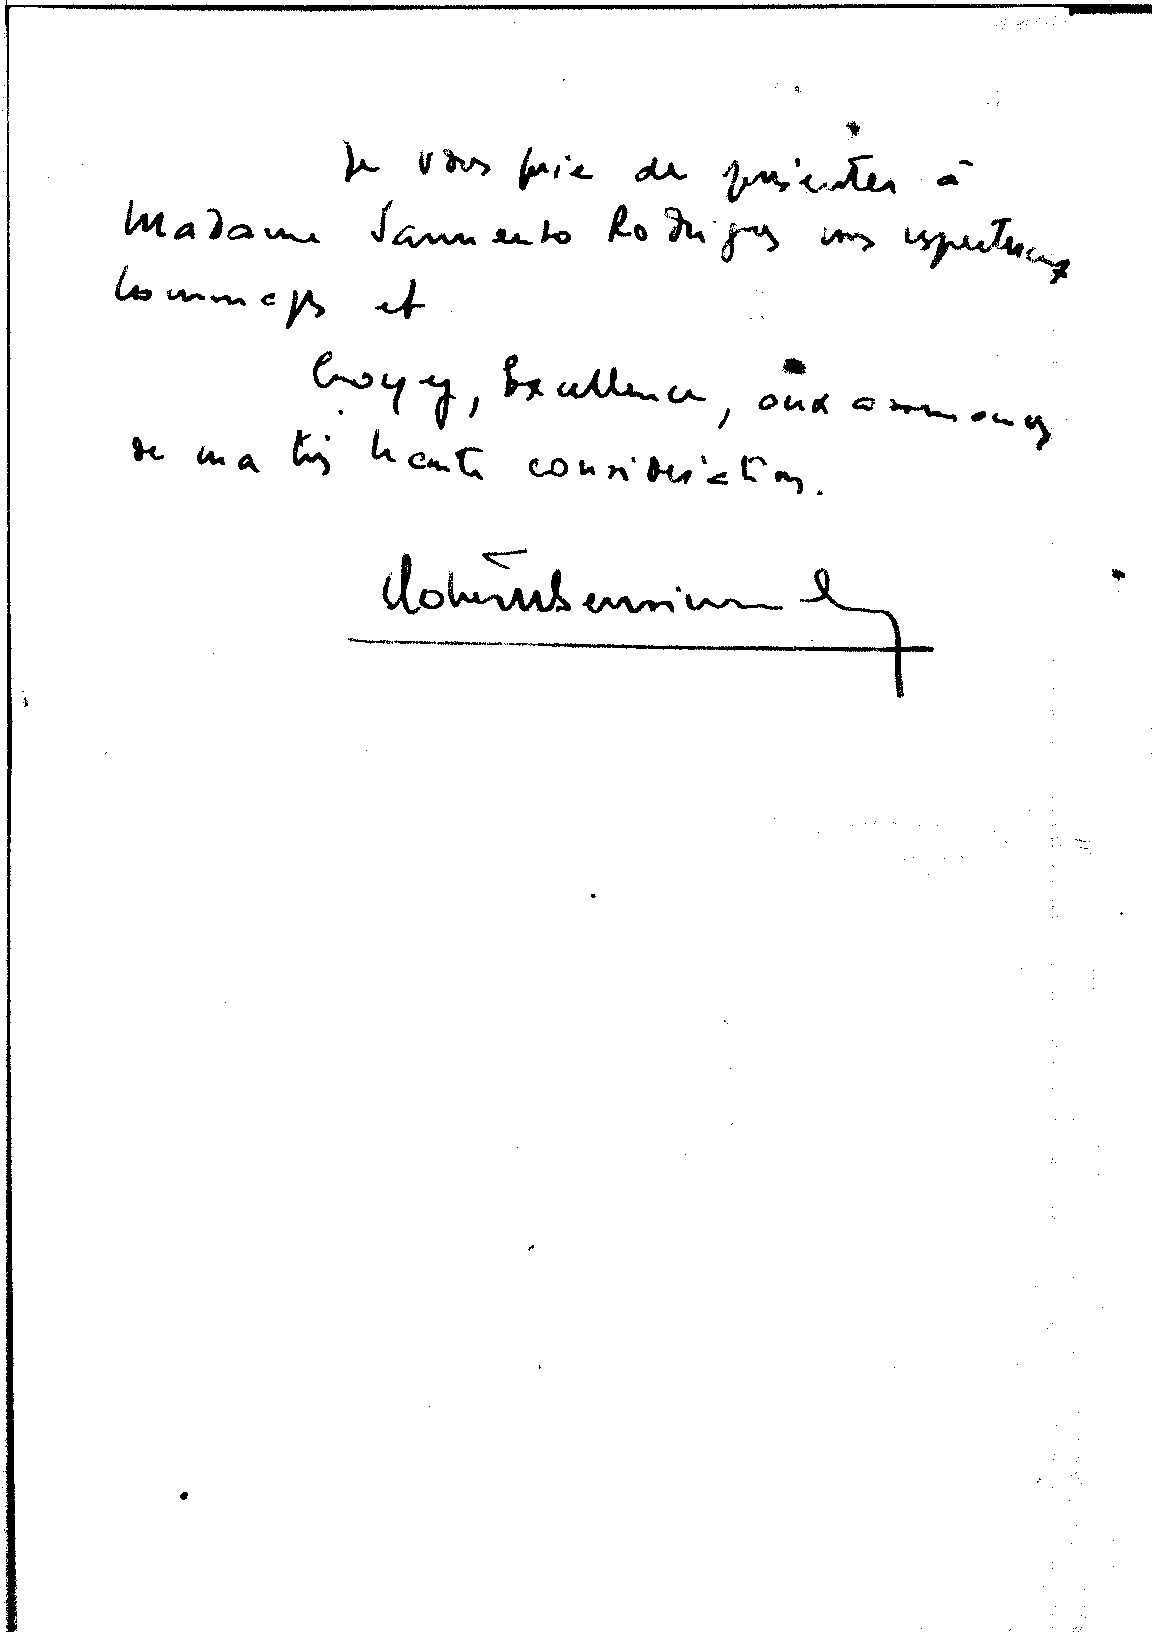 Je vous prie de présenter à
Madame Sarmento Rodrigues mes respectueux
hommages et
Croyez, Excellence, aux assurances
de ma très haute considération.